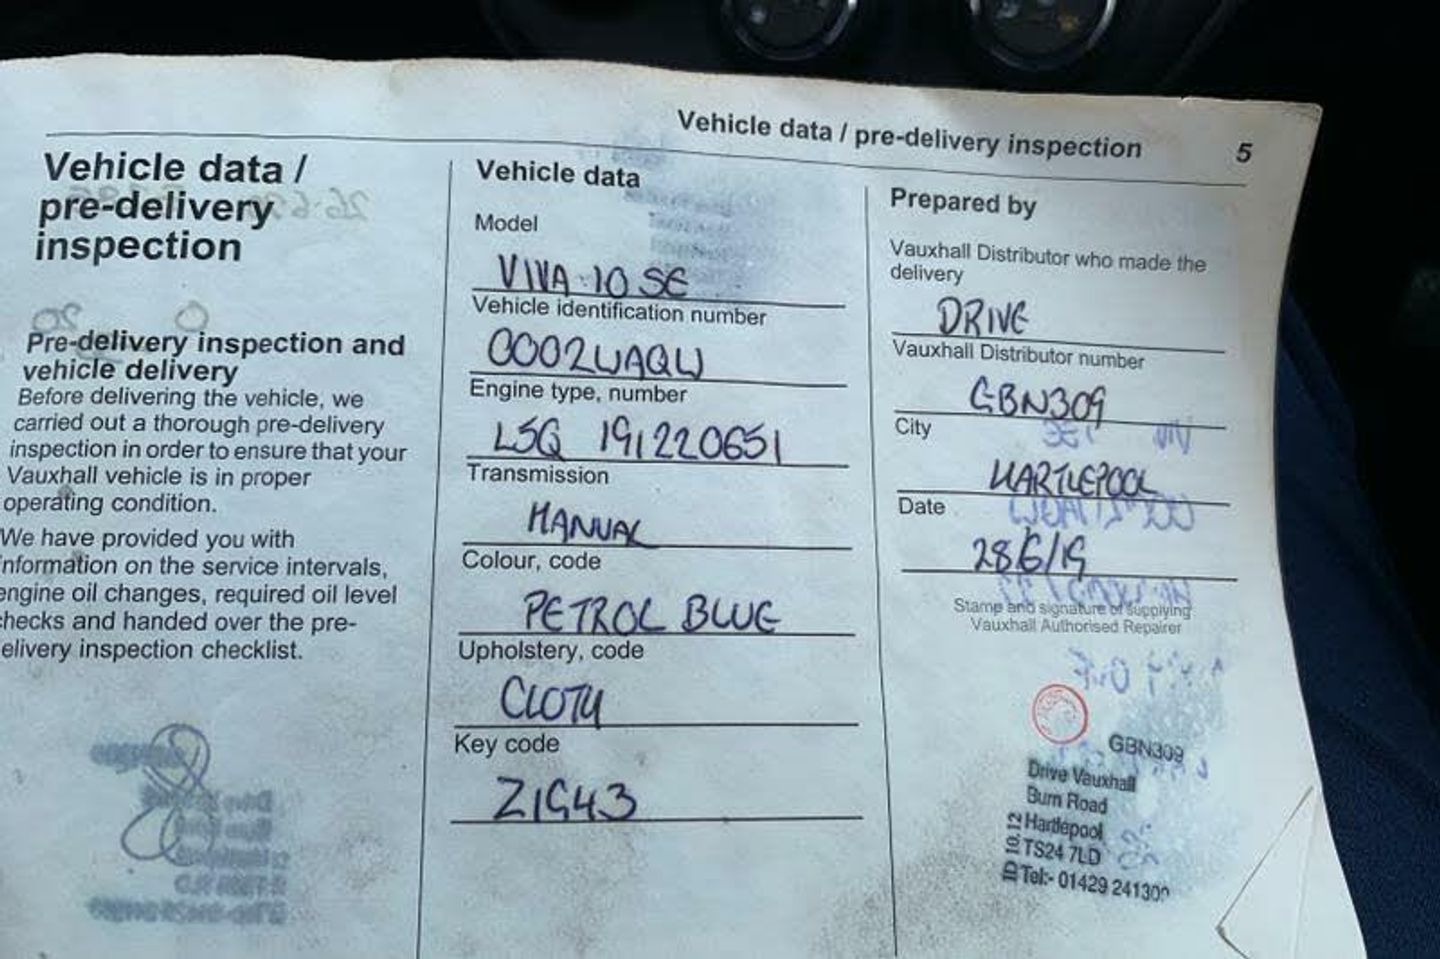 Vehicle data / pre-delivery inspection 5
Vehicle data /
pre-delivery
inspection
Pre-delivery inspection and
vehicle delivery
Before delivering the vehicle, we
carried out a thorough pre-delivery
inspection in order to ensure that your
Vauxhall vehicle is in proper
operating condition.
We have provided you with
information on the service intervals,
engine oil changes, required oil level
checks and handed over the pre-
elivery inspection checklist.
Vehicle data
Model
VIVA 10 SE
Vehicle identification number
Engine type, number
191220651
Transmission
MANUAL
Colour, code
PETROL BLUE
Upholstery, code
CLOTH
Key code
Prepared by
Vauxhall Distributor who made the
delivery
DRIVE
Vauxhall Distributor number
GBN309
City
HARTLEPOOL
Date
28/6/19
Stamp and signature of supplying
Vauxhall Authorised Repairer
GBN309
Drive Vauxhall
Burn Road
Hartlepool
TS24 7LD
ID 10.12
Tel:- 01429 241300